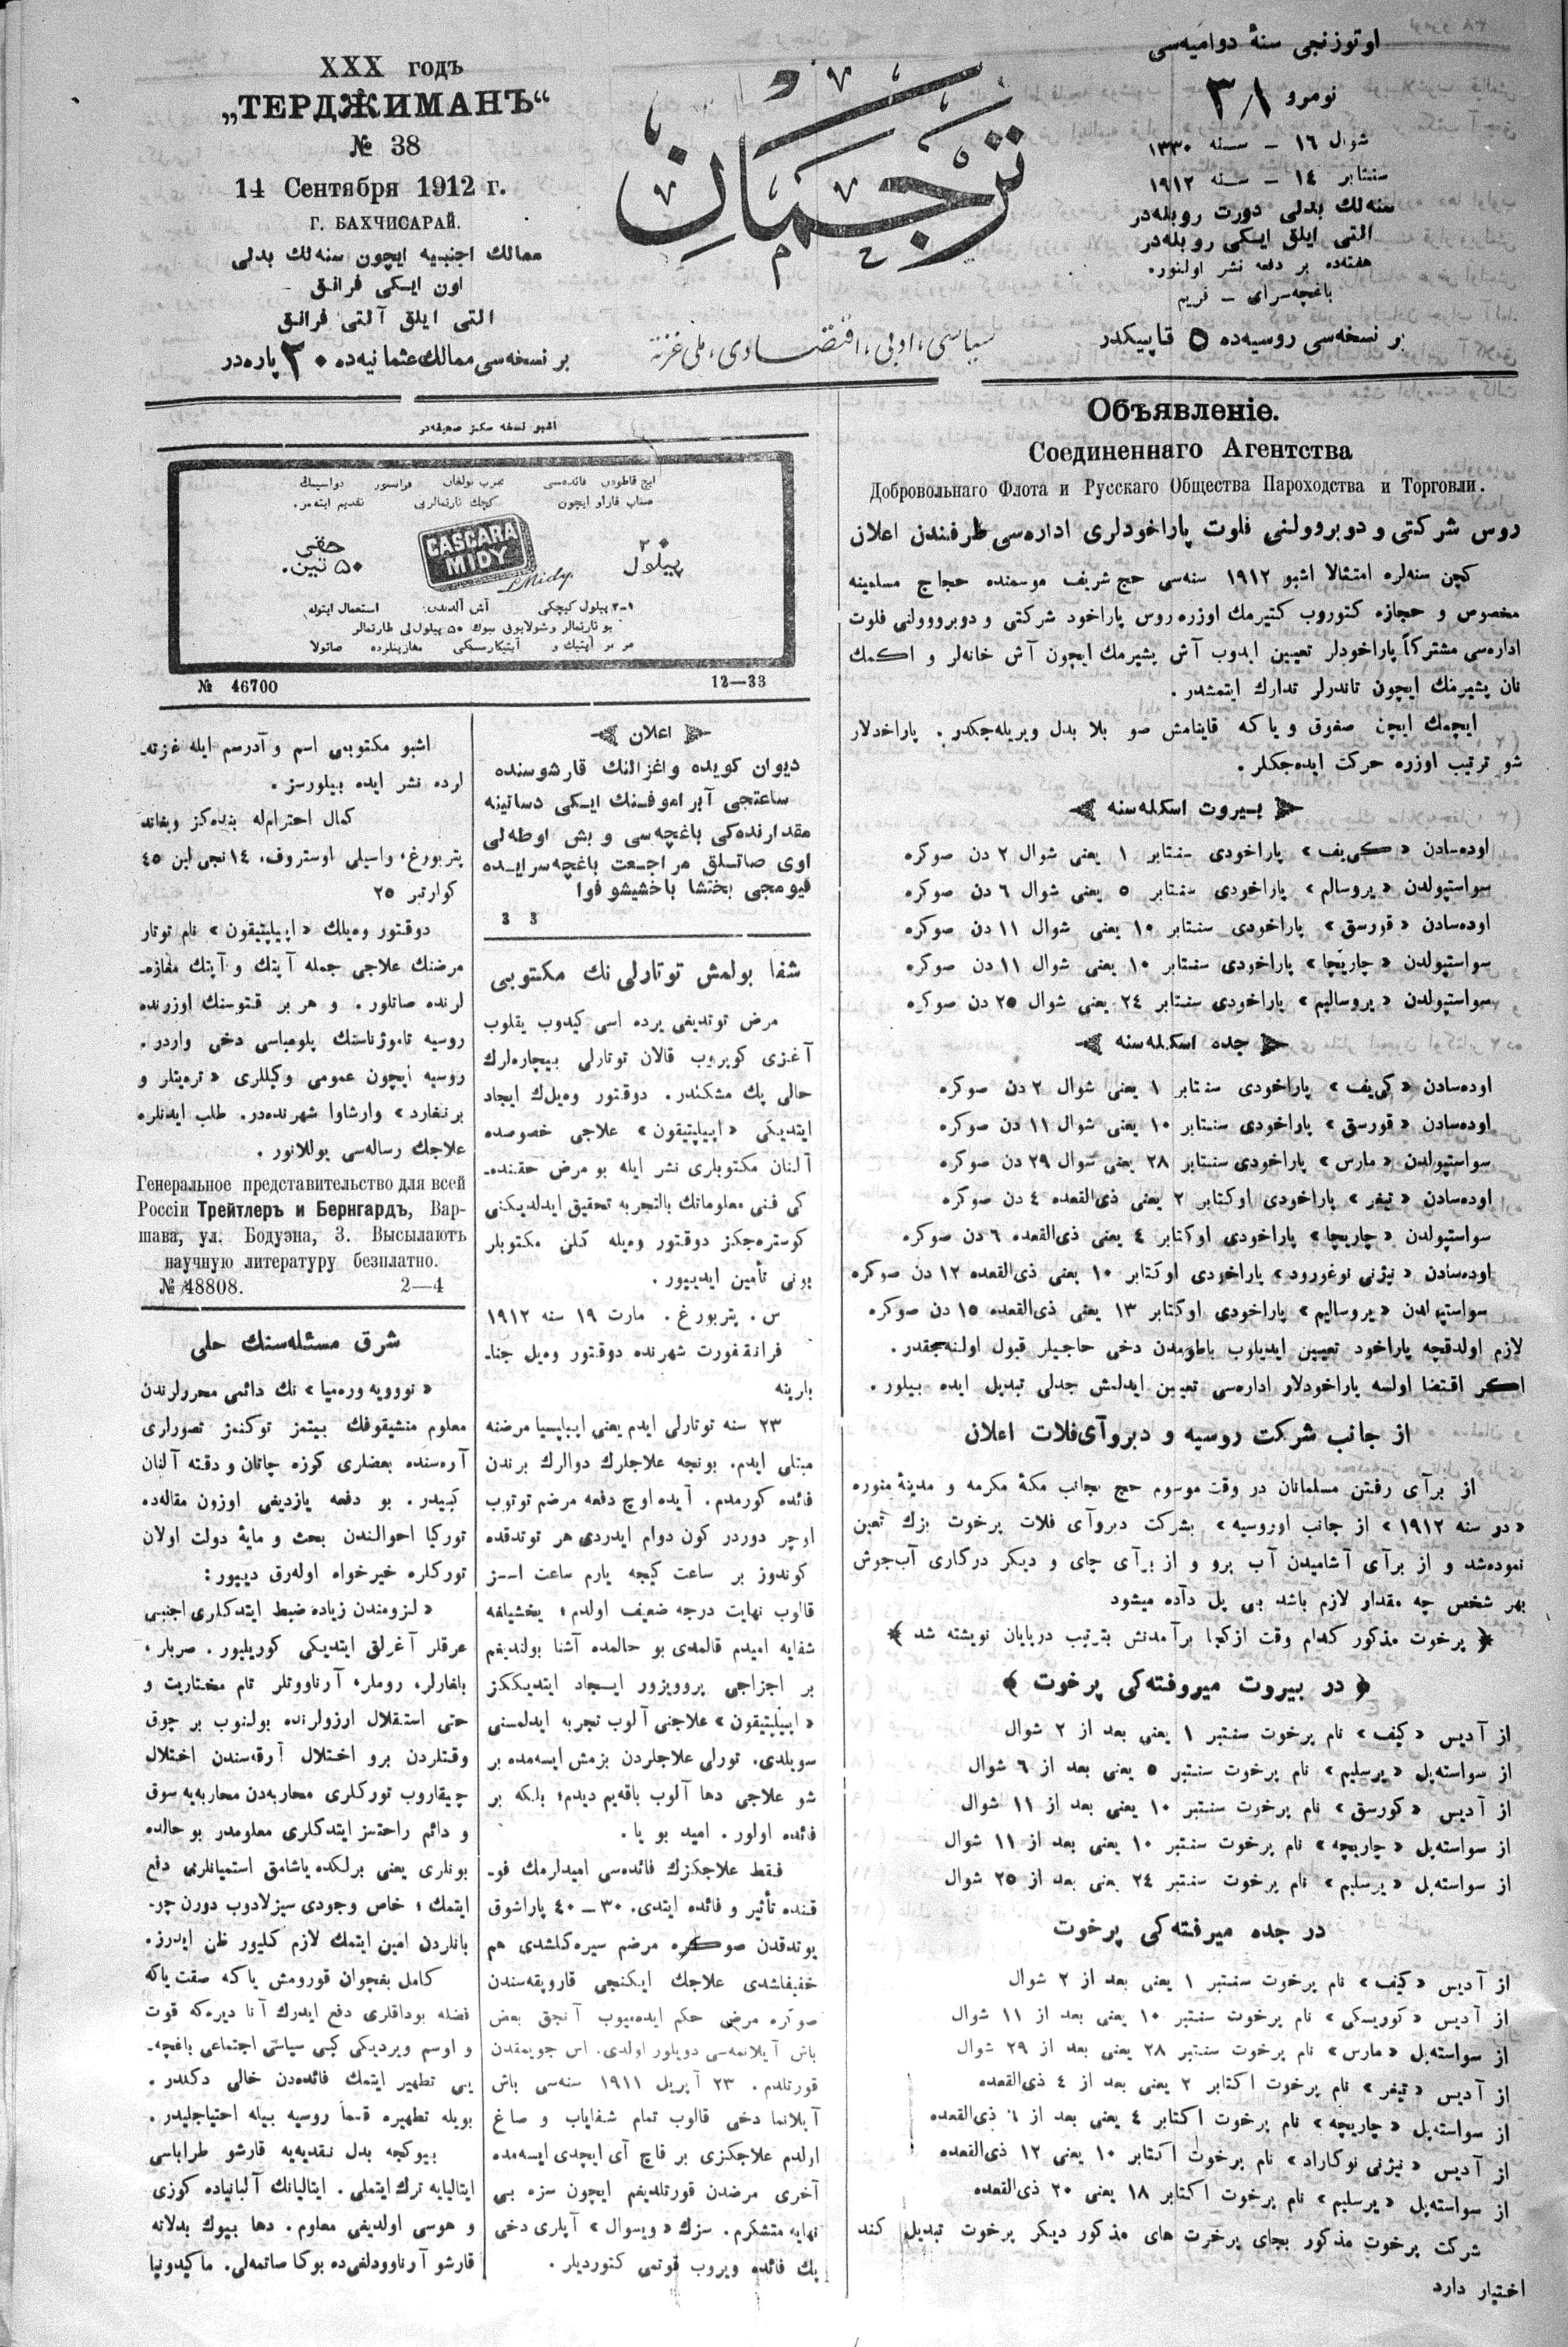 اوتوزنجی سنهٔ دوامیه‌سی
نومرو ٣٨
شوال ١٦ — سنه ١٣٣٠
سنتابر ١٤ — سنه ١٩١٢
سنه‌لك بدلی دورت روبله‌در
التی ایلق ایکی روبله‌در
هفته‌ده بر دفعه نشر اولنور.
باغچه‌سرای — قریم
بر نسخه‌سی روسیه‌ده ٥ قاپیکدر
ترجمان
سیاسی، ادبی، اقتصادی، ملی غزته
XXX годъ
„ТЕРДЖИМАНЪ“
№ 38
14 Сентября 1912 г.
Г. БАХЧИСАРАЙ.
ممالك اجنبیه ایچون سنه‌لك بدلی
اون ایکی فرانق
التی ایلق آلتی فرانق
بر نسخه‌سی ممالك عثمانیه‌ده ٢٠ پاره‌در
Объявленіе.
Соединеннаго Агентства
Добровольнаго Флота и Русскаго Общества Пароходства и Торговли.
روس شرکتی و دوبروولنی فلوت پاراخودلری اداره‌سی طرفندن اعلان
کچن سنه‌لره امتثالا اشبو ١٩١٢ سنه‌سی حج شریف موسمنده حجاج مسلمینه
مخصوص و حجازه کتوروب کتیرمك اوزره روس پاراخود شرکتی و دوبرووولنی فلوت
اداره‌سی مشترکاً پاراخودلر تعیین ایدوب آش پشیرمك ایچون آش خانه‌لر و اکمك
نان پشیرمك ایچون تاندرلر تدارك ایتمشدر.
ایچمك ایچن صغوق و یا که قاینامش صو بلا بدل ویریله‌جکدر. پاراخدلار
شو ترتیب اوزره حرکت ایده‌جکلر.
بیروت اسکله‌سنه
اوده‌سادن «کی‌یف» پاراخودی سنتابر ١ یعنی شوال ٢ دن صوکره
سواستپولدن «یروسالم» پاراخودی سنتابر ٥ یعنی شوال ٦ دن صوکره
اوده‌سادن «قورسق» پاراخودی سنتابر ١٠ یعنی شوال ١١ دن صوکره
سواستپولدن «چاریچا» پاراخودی سنتابر ١٠ یعنی شوال ١١ دن صوکره
سواستپولدن «یروسالیم» پاراخودی سنتابر ٢٤ یعنی شوال ٢٥ دن صوکره
جده اسکله‌سنه
اوده‌سادن «کی‌یف» پاراخودی سنتابر ١ یعنی شوال ٢ دن صوکره
اوده‌سادن «قورسق» پاراخودی سنتابر ١٠ یعنی شوال ١١ دن صوکره
سواستپولدن «مارس» پاراخودی سنتابر ٢٨ یعنی شوال ٢٩ دن صوکره
اوده‌سادن «تیغر» پاراخودی اوکتابر ٢ یعنی ذی‌القعده ٤ دن صوکره
سواستپولدن «چاریچا» پاراخودی اوکتابر ٤ یعنی ذی‌القعده ٦ دن صوکره
اوده‌سادن «نیژنی نوغورود» پاراخودی اوکتابر ١٠ یعنی ذی‌القعده ١٢ دن صوکره
سواستپولدن «یروسالیم» پاراخودی اوکتابر ١٣ یعنی ذی‌القعده ١٥ دن صوکره
لازم اولدقچه پاراخود تعیین ایدیلوب باطومدن دخی حاجیلر قبول اولنه‌جقدر.
اکر اقتضا اولسه پاراخودلار اداره‌سی تعیین ایدلمش جدلی تبدیل ایده بیلور.
از جانب شرکت روسیه و دبروآی‌فلات اعلان
از برآی رفتن مسلمانان در وقت موسوم حج بجانب مکهٔ مکرمه و مدینهٔ منوره
«در سنه ١٩١٢» از جانب اوروسیه» بشرکت دبروآی فلات پرخوت بزك تعین
نموده‌شد و از برآی آشامیدن آب برو و از برآی چای و دیکر درکاری آب‌جوش
بهر شخص چه مقدار لازم باشد بی پل دآده میشود
پرخوت مذکور کدام وقت ازکجا برآمدنش بترتیب درپایان نویشته شد
در بیروت میروفته‌کی پرخوت
از آدیس «کیف» نام پرخوت سنتبر ١ یعنی بعد از ٢ شوال
از سواسته‌پل «یرسلیم» نام پرخوت سنتبر ٥ یعنی بعد از ٦ شوال
از آدیس «کورسق» نام پرخوت سنتبر ١٠ یعنی بعد از ١١ شوال
از سواسته‌پل «چاریچه» نام پرخوت سنتبر ١٠ یعنی بعد از ١١ شوال
از سواسته‌پل «یرسلیم» نام پرخوت سنتبر ٢٤ یعنی بعد از ٢٥ شوال
در جده میرفته‌کی پرخوت
از آدیس «کیف» نام پرخوت سنتبر ١ یعنی بعد از ٢ شوال
از آدیس «کوویسکی» نام پرخوت سنتبر ١٠ یعنی بعد از ١١ شوال
از سواسته‌پل «مارس» نام پرخوت سنتبر ٢٨ یعنی بعد از ٢٩ شوال
از آدیس «تیغر» نام پرخوت اکتابر ٢ یعنی بعد از ٤ ذی‌القعده
از سواسته‌پل «چاریچه» نام پرخوت اکتابر ٤ یعنی بعد از ٦ ذی‌القعده
از آدیس «نیژنی نوکاراد» نام پرخوت اکتابر ١٠ یعنی ١٢ ذی‌القعده
از سواسته‌پل «یرسلیم» نام پرخوت اکتابر ١٨ یعنی ٢٠ ذی‌القعده
شرکت پرخوت مذکور بجای پرخرت های مذکور دیکر پرخوت تبدیل کند
اختیار دارد
اشبو نسخه سکز صحیفه‌در
ایچ قاطودن فائده‌سی مجرب بولغان فرانسوز دواسینك
صناب قاراو ایچون کچك نارتمالرنی تقدیم ایته‌مز.
٢٠ پیلول
CASCARA MIDY
L. Midy.
حقی ٥٠ تین.
١-٢ پیلول کیچکی آش آلدیدن استعمال ایتوله
بو نارتمالر و شولایوق بیوك ٥٠ پیلول‌لی طارتمالر
هر بر آپتیك و آپتیکارسکی مغازینلرده صاتولا
№ 46700
12—33
اعلان
دیوان کویده واغزالنك قارشوسنده
ساعتجی آبراموفنك ایکی دساتینه
مقدارنده‌کی باغچه‌سی و بش اوطه‌لی
اوی صاتلق مراجعت باغچه‌سرایده
قیومجی بختشا باخشیشوفوا
3 3
شفا بولمش توتارلی نك مکتوبی
مرض توتدیغی یرده اسی کیدوب یقلوب
آغزی کوپروب قالان توتارلی بیچاره‌لرك
حالی پك مشکلدر. دوقتور وه‌یلك ایجاد
ایتدیکی «اپیلپتیقون» علاجی خصوصده
آلنان مکتوبلری نشر ایله بو مرض حقنده‌-
کی فنی معلوماتك بالتجربه تحقیق ایدلدیکنی
کوستره‌جکز دوقتور وه‌یله کلن مکتوبلر
بونی تأمین ایدییور.
س. پتربورغ. مارت ١٩ سنه ١٩١٢
فرانقفورت شهرنده دوقتور وه‌یل جنا-
بارینه
٢٣ سنه توتارلی ایدم یعنی اپیلپسیا مرضنه
مبتلی ایدم. بونجه علاجلرك دوالرك برندن
فائده کورمدم. آیده اوچ دفعه مرضم توتوب
اوچر دوردر کون دوام ایدردی هر توتدقده
کوندوز بر ساعت کیجه یارم ساعت اسسز
قالوب نهایت درجه ضعیف اولدم؛ یخشیلغه
شفایه امیدم قالمدی بو حالمده آشنا بولندیغم
بر اجزاجی پروویزور ایجاد ایتدیککز
«اپیلپتیقون» علاجنی آلوب تجربه ایدلمسنی
سویلدی. تورلی علاجلردن بزمش ایسه‌مده بر
شو علاجی دها آلوب باقه‌یم دیدم؛ بلکه بر
فائده اولور. امید بو یا.
فقط علاجکزك فائده‌سی امیدلرمك فو-
قنده تأثیر و فائده ایتدی. ٣٠ — ٤٠ پاراشوق
یوتدقدن صوکره مرضم سیره‌کلشدی هم
خفیفلشدی علاجك ایکنجی قاروبقه‌سندن
صوکره مرض حکم ایده‌میوب آنجق بعض
باش آیلانمه‌سی دویلور اولدی. اس جویمقدن
قورتلدم. ٢٣ آپریل ١٩١١ سنه‌سی باش
آیلانما دخی قالوب تمام شفایاب و صاغ
اولدم علاجکزی بر قاچ آی ایچدی ایسه‌مده
آخری مرضدن قورتلدیغم ایچون سزه بی
نهایه متشکرم. سزك «ویسوال» آپلری دخی
پك فائده ویروب قوتمی کتوردیلر.
اشبو مکتوبمی اسم و آدرسم ایله غزته-
لرده نشر ایده بیلورسز.
کمال احترامله بنده‌کز ویغاند
پتربورغ، واسیلی اوستروف، ١٤ نجی لین ٤٥
کوارتیر ٢٥
دوقتور وه‌یلك «اپیلپتیقون» نام توتار
مرضنك علاجی جمله آپتك و آپتك مغازه-
لرنده صاتلور. و هر بر قتوسنك اوزرنده
روسیه تاموژناسنك پلومباسی دخی واردر.
روسیه ایچون عمومی وکیللری «تره‌یتلر و
برنغارد» وارشاوا شهرنده‌در. طلب ایدنلره
علاجك رساله‌سی یوللانور.
Генеральное представительство для всей
Россіи Трейтлеръ и Бернгардъ, Вар-
шава, ул. Бодуэна, 3. Высылаютъ
научную литературу безплатно.
№ 48808. 2—4
شرق مسئله‌سنك حلی
«نوویه وره‌میا» نك دائمی محررلرندن
معلوم منشیقوفك بیتمز توکنمز تصوراری
آره‌سنده بعضلری کوزه چاتان و دقته آلنان
کبیدر. بو دفعه یازدیغی اوزون مقاله‌ده
تورکیا احوالندن بحث و مایهٔ دولت اولان
تورکلره خیرخواه اوله‌رق دییور:
«لزومندن زیاده ضبط ایتدکلری اجنبی
عرقلر آغرلق ایتدیکی کوریلیور. صربلر،
بلغارلر، روملر، آرناووتلر تام مختاریت و
حتی استقلال ارزولرنده بولنوب بر چوق
وقتلردن برو اختلال آرقه‌سندن اختلال
چیقاروب تورکلری محاربه‌دن محاربه‌یه سوق
و دائم راحتسز ایتدکلری معلومدر بو حالده
بونلری یعنی برلکده یاشامق استمیانلرنی دفع
ایتمك؛ خاص وجودی سیزلادوب دورن چو-
بانلردن امین ایتمك لازم کلیور ظن ایدرز.
کامل بغچوان قورومش یا که صقت یا که
فضله بوداقلری دفع ایدرك آنا دیره‌که قوت
و اوسم ویردیکی کبی سیاسی اجتماعی باغچه-
یی تطهیر ایتمك فائده‌دن خالی دکلدر.
بویله تطهیره قسماً روسیه بیله احتیاجلیدر.
بیوکجه بدل نقدیه‌یه قارشو طرابلسی
ایتالیایه ترك ایتملی. ایتالیانك آلبانیاده کوزی
و هوسی اولدیغی معلوم. دها بیوك بدلانه
قارشو آرناوودلغی‌ده بوکا صاتمه‌لی. ماکیدونیا